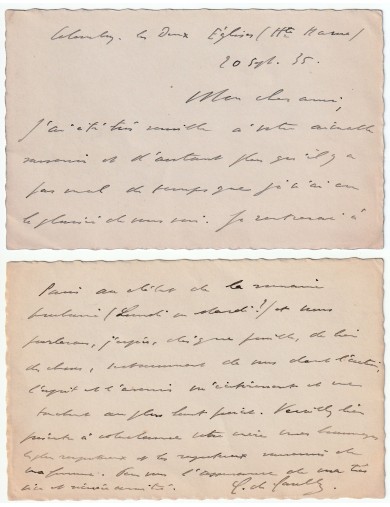 Colombey-les Deux Églises (Hte Marne)
20 Sept. 35.
Mon cher ami,
J'ai été très sensible à votre aimable
souvenir et d'autant plus qu'il y a
pas mal de temps que je n'ai eu
le plaisir de vous voir. Je rentrerai à
Paris au début de la semaine
prochaine (Lundi ou Mardi!) et nous
parlerons, j'espère, dès que possible, de bien
des choses, notamment de vous dont
l'esprit et l'avenir m'intéressent et me
touchent au plus haut point. Veuillez bien
présenter à votre mère mes hommages
les plus respectueux et les respectueux souvenirs de
ma femme. Pour vous l'assurance de ma très
vive et sincère amitié. C. de Gaulle